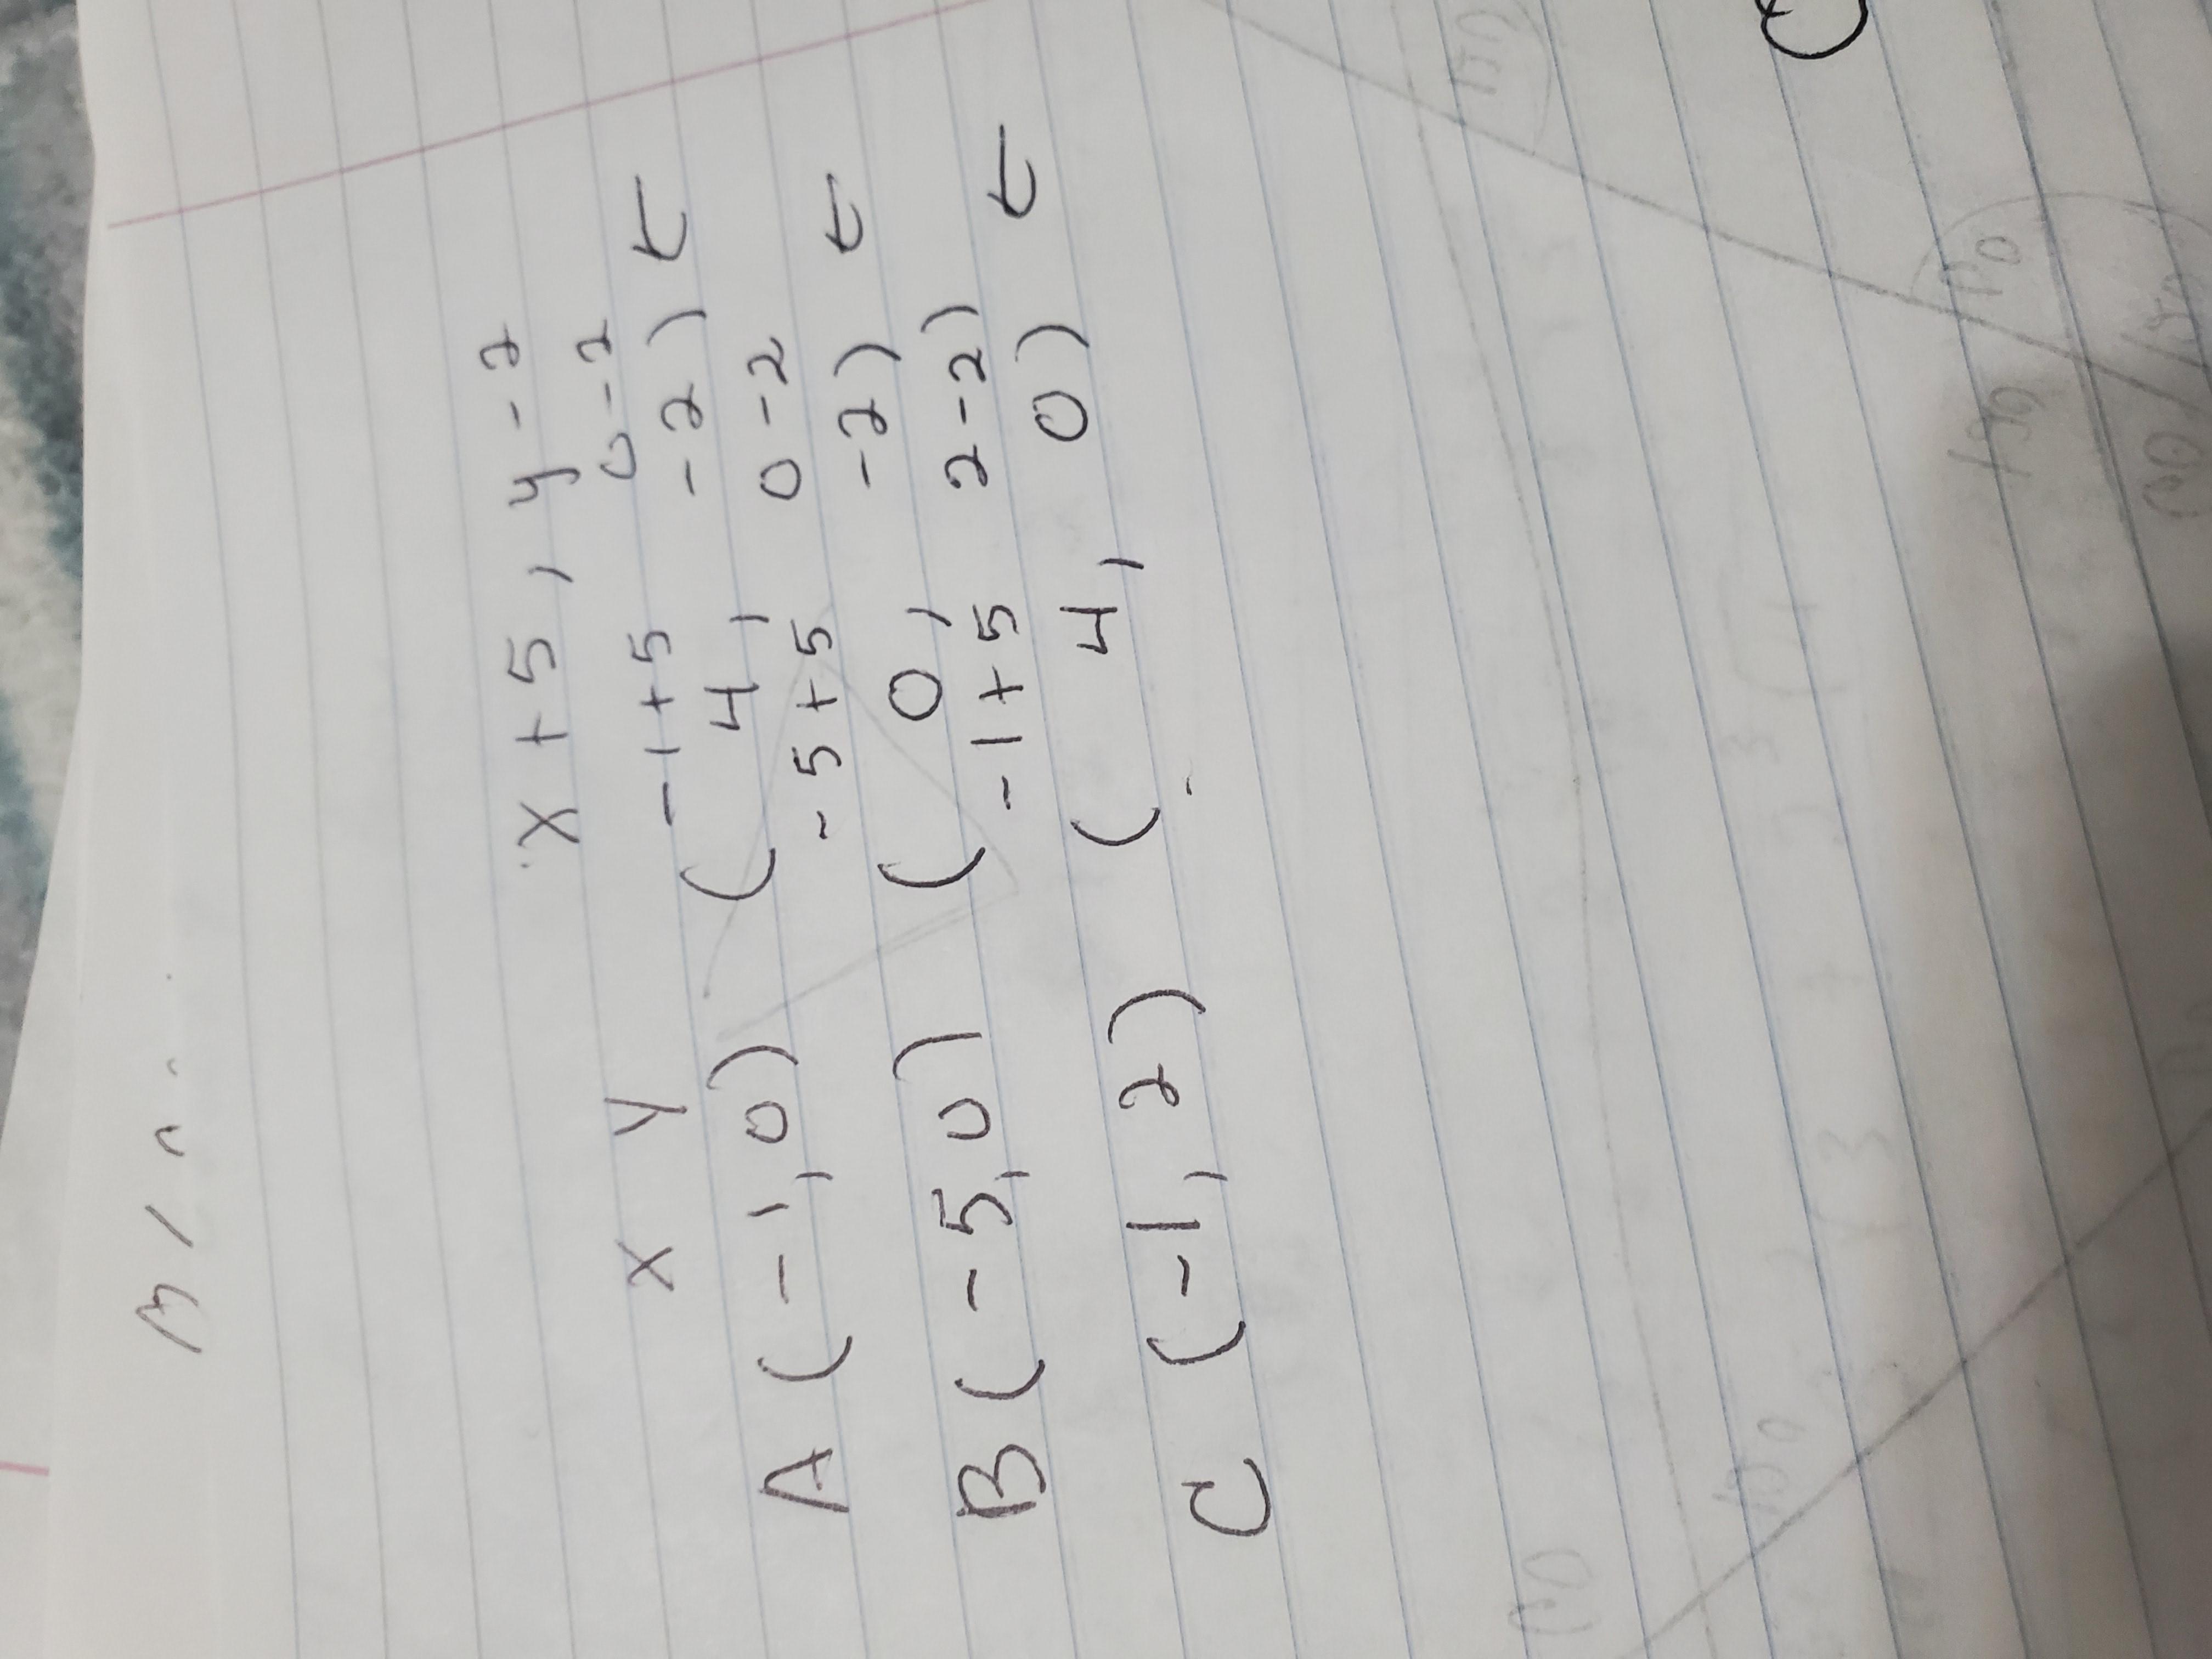 x + 5 , y - 2
x y -1+5 0-2
A (-1,0) ( 4, -2) ←
-5+5 0-2
B (-5,0) ( 0, -2) ←
-1+5 2-2)
C (-1,2) ( 4, 0) ←